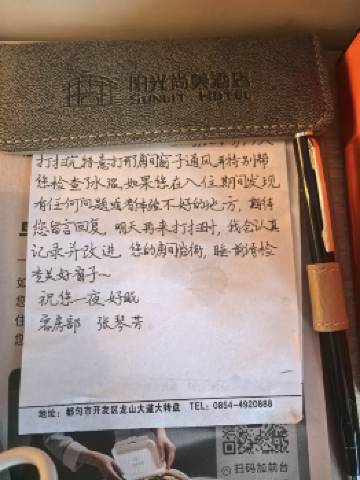 阳光尚美酒店
SUNLIT HOTEL
打扫完特意打开房间窗子通风并特别帮
您检查了水温,如果您在入住期间发现
有任何问题或者体验不好的地方,期待
您留言回复,明天再来打扫时,我会认真
记录并改进,您的房间临街,睡前请检
查关好窗子~
祝您一夜好眠
客房部 张琴芳
地址:都匀市开发区龙山大道大转盘 TEL:0854-4920888
扫码加前台